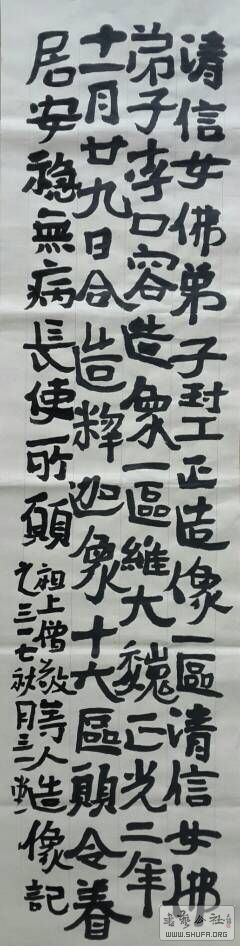 清信女佛弟子正造像一區清信女佛
弟子李口容造象一區維大魏正光二年
十一月廿九日合造釋迦象十六區願令眷
居安穩無病長使所願
上僧敬等人造像記
秋月三
書藝公社
WWW.SHUFA.ORG